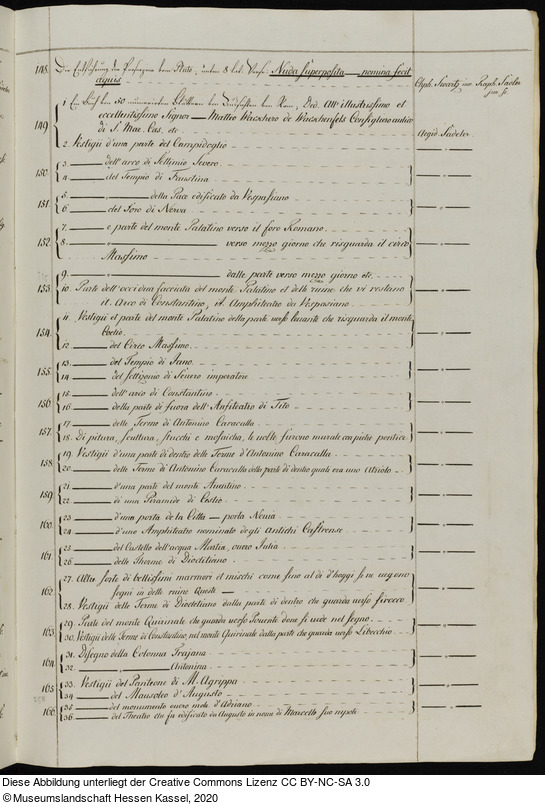 148. Die Entführung der Proserpina vom Pluto, unten 8 lat. Verse: Nuda superposita — nomina fecit
aquis. Chph. Swartz inv. Raph. Sadeler
1 Ein Buch von 50 numerirten Blättern von Rom, Ded. All' illustrissimo et
eccellentissimo Signor — Matteo Wackhero de Wackhenfels Consigliero aulico
149. di S. Mae. Ces. etc Aegid Sadeler
2. Vestigii d'una parte del Campidoglio
3. — dell' arco di Settimio Severo.
150. — " —
4. — del Tempio di Faustina
5. — " — della Pace edificato da Vespasiano
151. — " —
6 — del Foro di Nerva
7. — e parte del monte Palatino verso il foro Romano.
152. 8. — " — verso mezzo giorno che risguarda il circo — " —
Massimo
9. — " — dalle parte verso mezzo giorno etc.
153. 10. Parte dell' occidua facciata del monte Palatino et delle ruine che vi restano — " —
it. Arco di Constantino, it. Amphiteatro da Vespasiano
11. Vestigii et parte del monte Palatino della parte verso levante che risguarda il monte
154. Coelio. — " —
12. — del Circo Massimo.
13. — del Tempio di Jano.
155. — " —
14 — del settizonio di Severo imperatore
15. — dell' arco di Constantino.
156. 16. — della parte di fuora dell' Anfiteatro di Tito — " —
17 — delle Terme di Antonino Caracalla
157. — " —
18. Di pitura, scultura, stucchi e mosaicha, le volte furono murate con piche pomice
19. Vestigii d'una parte di dentro delle Terme d'Antonino Caracalla
158. 20. — delle Terme di Antonino Caracalla della parte di dentro quale era uno Atriolo — " —
21. — d'una parte del monte Aventino
159. 22. — di una Piramide di Cestio — " —
23 — d'una porta de la Citta — porta Nevia
160. 24 — d'uno Amphiteatro nominato degli Antichi Castrense — " —
25 — del Castello dell' acqua Martia, overo Julia
161. 26 — delle Therme di Diocletiano — " —
27. Altre sorte di bellissimi marmori et mischi come fino al di d'hoggi se ne vegono
162. segni in delle ruine Queste — — " —
28. Vestigii delle Terme di Diocletiano dalla parte di dentro che guarda verso sirocco
29. Parte del monte Quirinale che guarda verso Ponente dove si vede nel segno
163. 30. Vestigii delle Terme di Constantino nel monte Quirinale dalla parte che guarda verso Libecchio — " —
31. Disegno della Colonna Trajana
164. 32. — " — Antonina — " —
33. Vestigii del Panteone di M. Agrippa
165. 34 — del Mausoleo d'Augusto — " —
35 — del monumento overo mole d'Adriano
166. 36 — del Theatro che fu edificato da Augusto in nome di Marcello suo nipote — " —
Diese Abbildung unterliegt der Creative Commons Lizenz CC BY-NC-SA 3.0
©Museumslandschaft Hessen Kassel, 2020